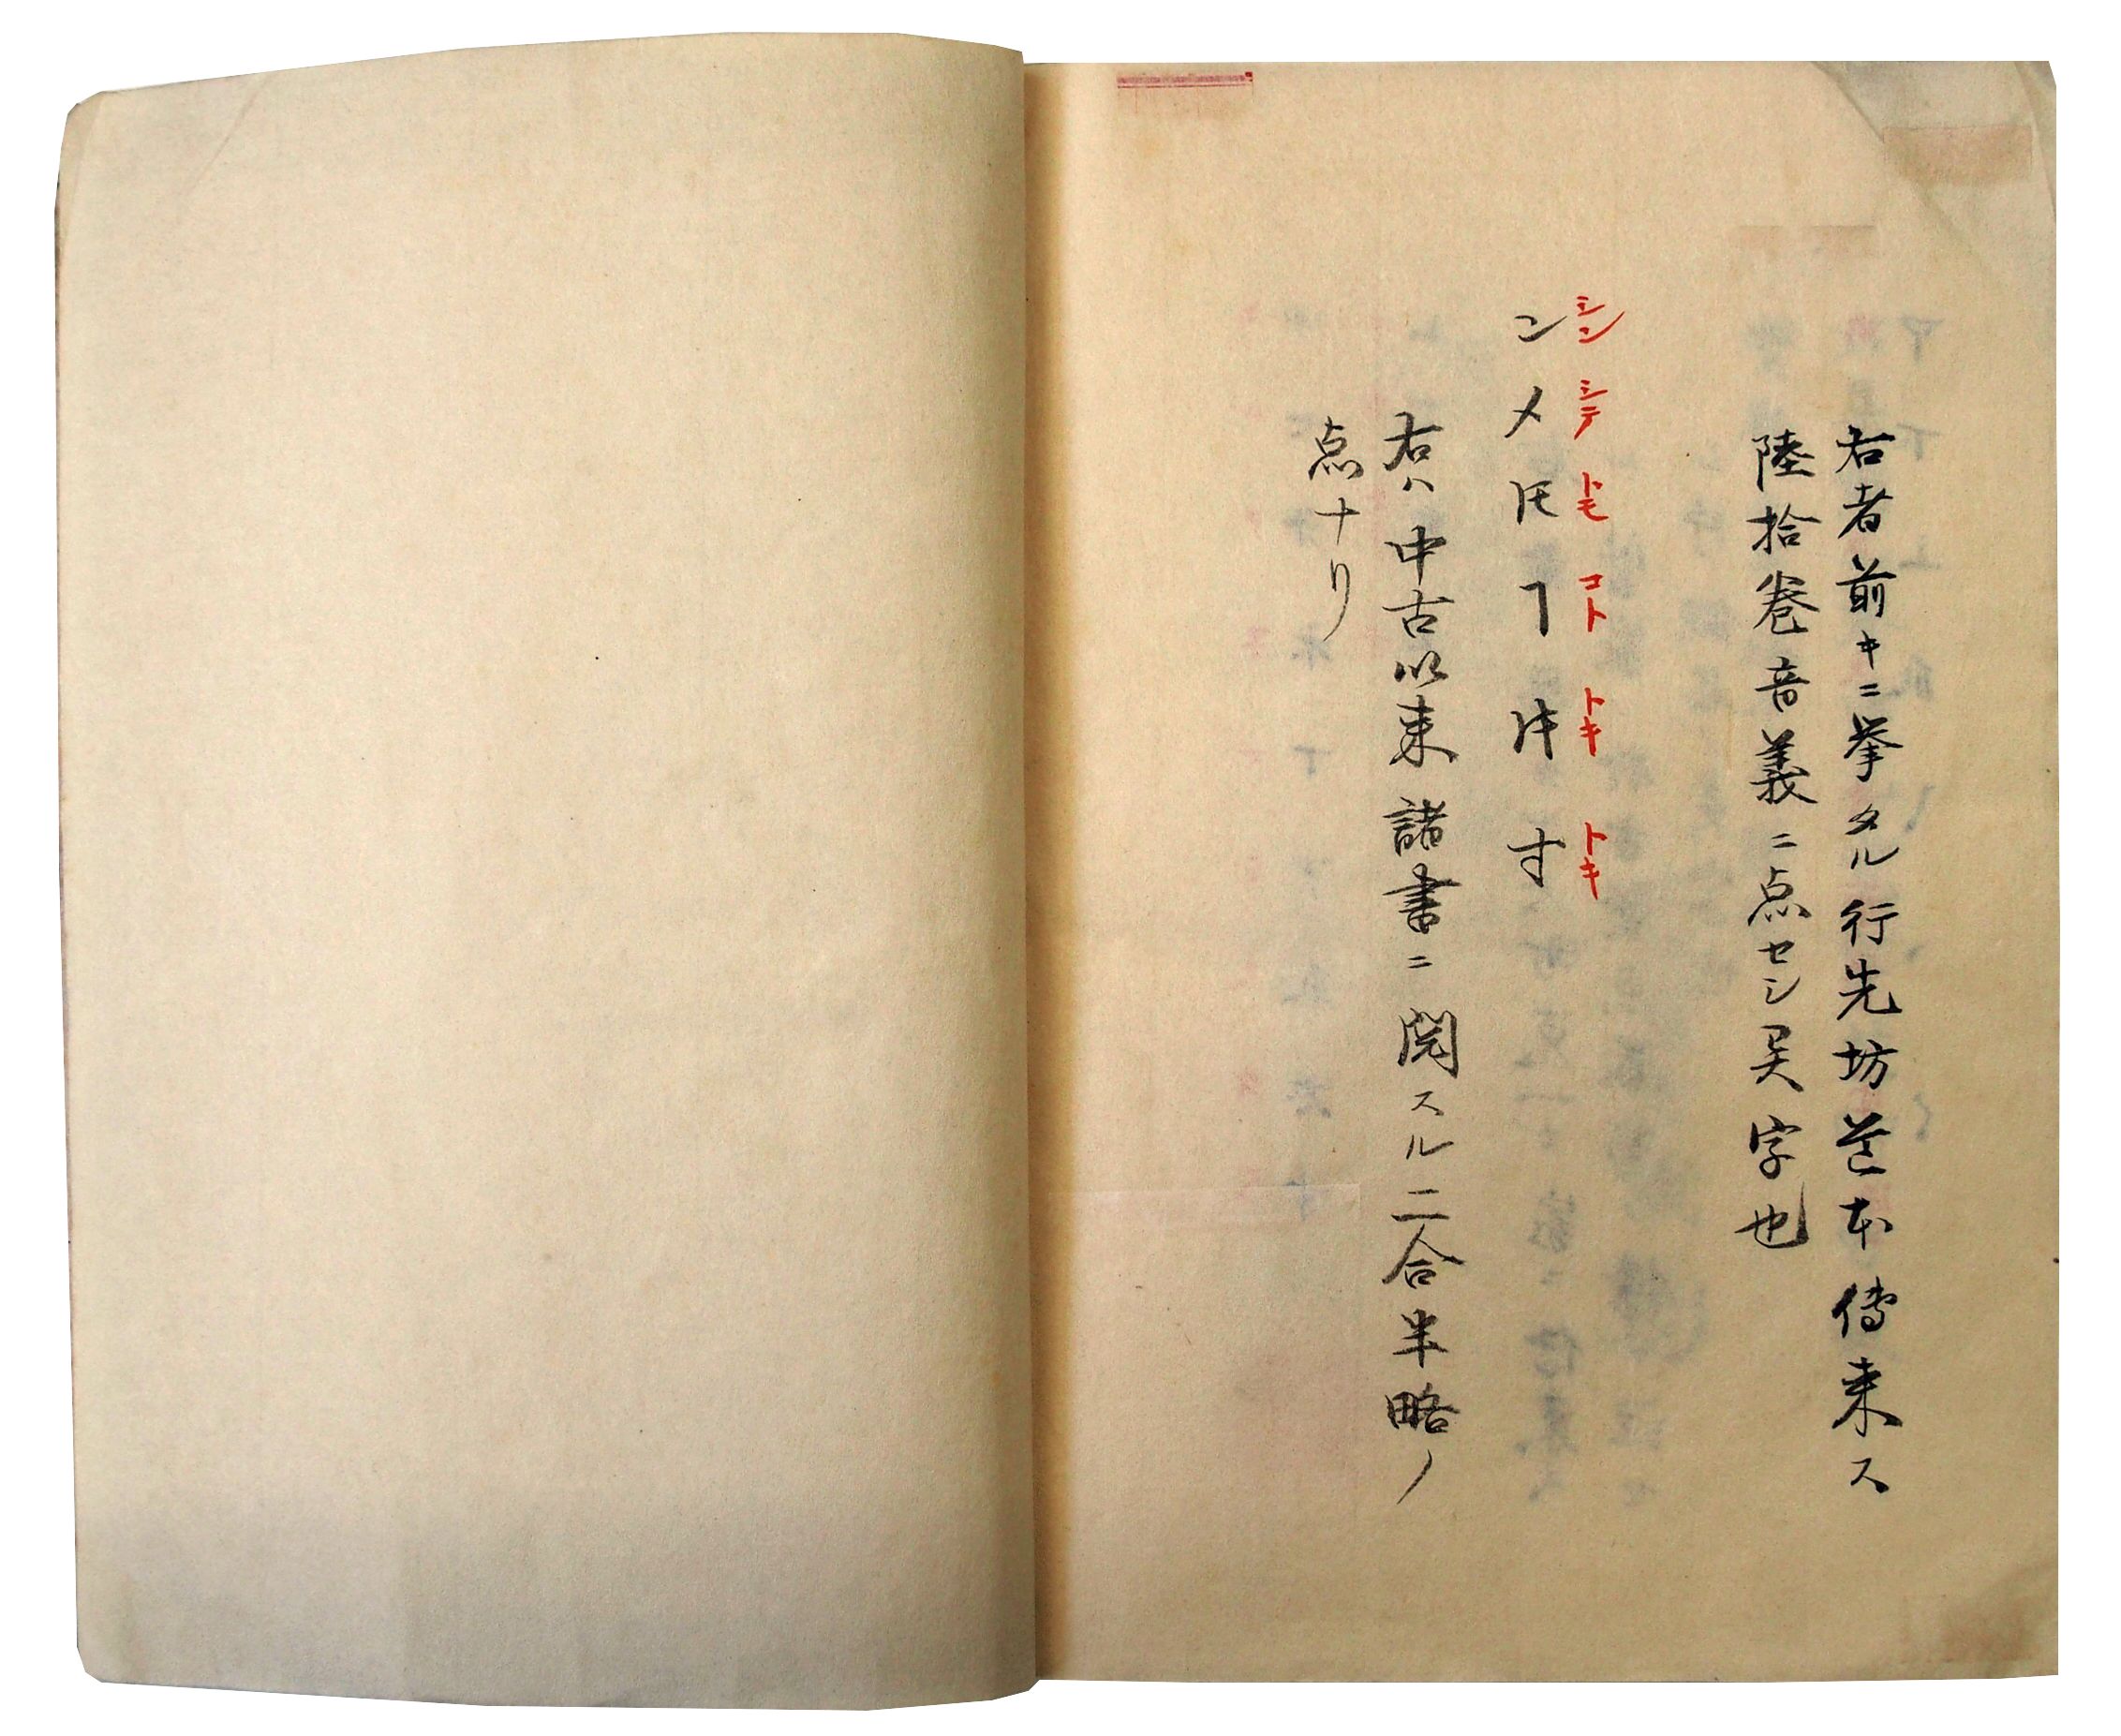 右者前キニ挙タル行先坊蔵本傳来ス
陸拾巻音義ニ点セシ異字也
シン シテ トモ コト トキ トキ
ン 〆 𪜈 ヿ 𬼂 寸
右ハ中古以来諸書ニ閲スル二合半略ノ
点ナリ